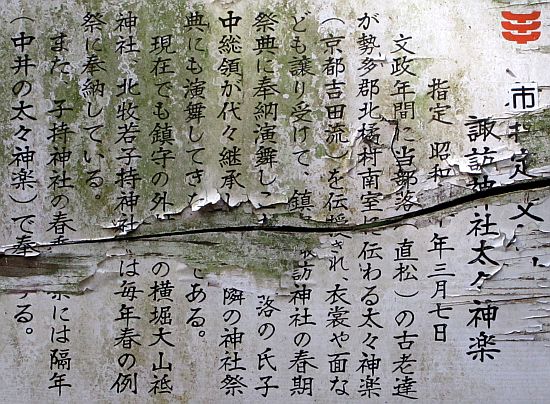 市指定文
諏訪神社太々神楽
指定 昭和 年三月七日
文政年間に当部落(直松)の古老達
が勢多郡北橘村南室に伝わる太々神楽
(京都吉田流)を伝授され、衣裳や面な
ども譲り受けて、鎮 諏訪神社の春期
祭典に奉納演舞し 落の氏子
中総領が代々継承し 隣の神社祭
典にも演舞してき ある。
現在でも鎮守の外 の横堀大山祗
神社、北牧若子持神社 は毎年春の例
祭に奉納している
また、子持神社の春季 祭には隔年
(中井の太々神楽)で奉 する。